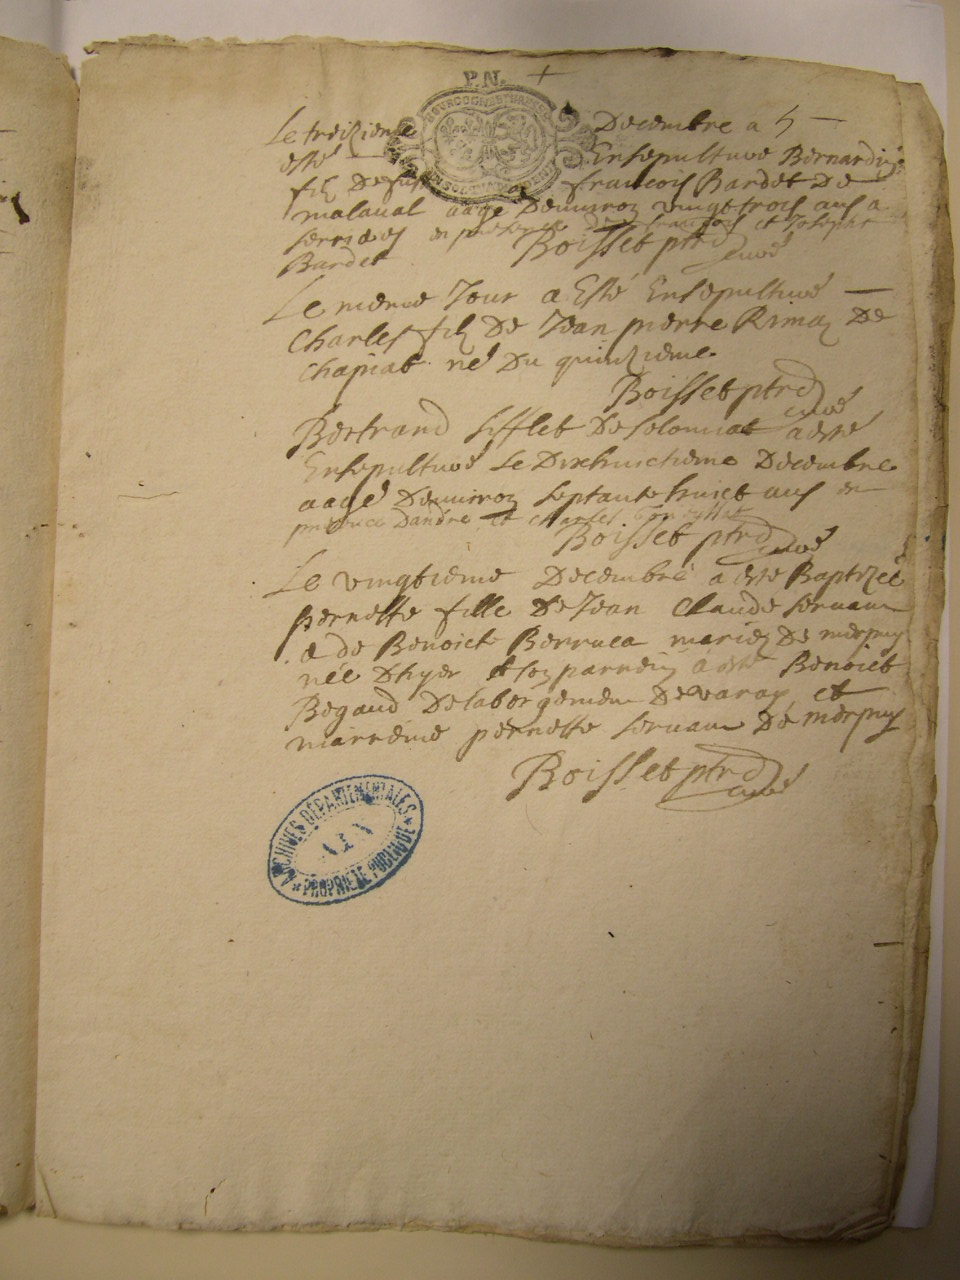 P.N.
Le treizieme Decembre a
esté Ensepulturé Bernardin
filz De feu francois Bardet De
malaval aage Denviron vingt trois ans a
en presence francois et Joseph
Bardet Boisset ptre curé
Le meme Jour a Esté Ensepulturé
Charles filz De Jean pierre De
chapiat né Du quinzieme
Boisset ptre curé
Bertrand Sifflet De Solomiat a esté
Ensepulturé Le Dixhuictieme Decembre
aagé Denviron septante huict ans en
presence Dandre et charles
Boisset ptre curé
Le vingtieme Decembre a esté Baptizée
pernette fille De Jean Claude servaux
& de Benoiste mariez De merpuis
née Dhyer & son parrein a esté Benoict
Begaud De varay et
marreine pernette servaux De merpuis
Boisset ptre curé
ARCHIVES DÉPARTEMENTALES
AIN
* PROPRIÉTÉ PUBLIQUE *